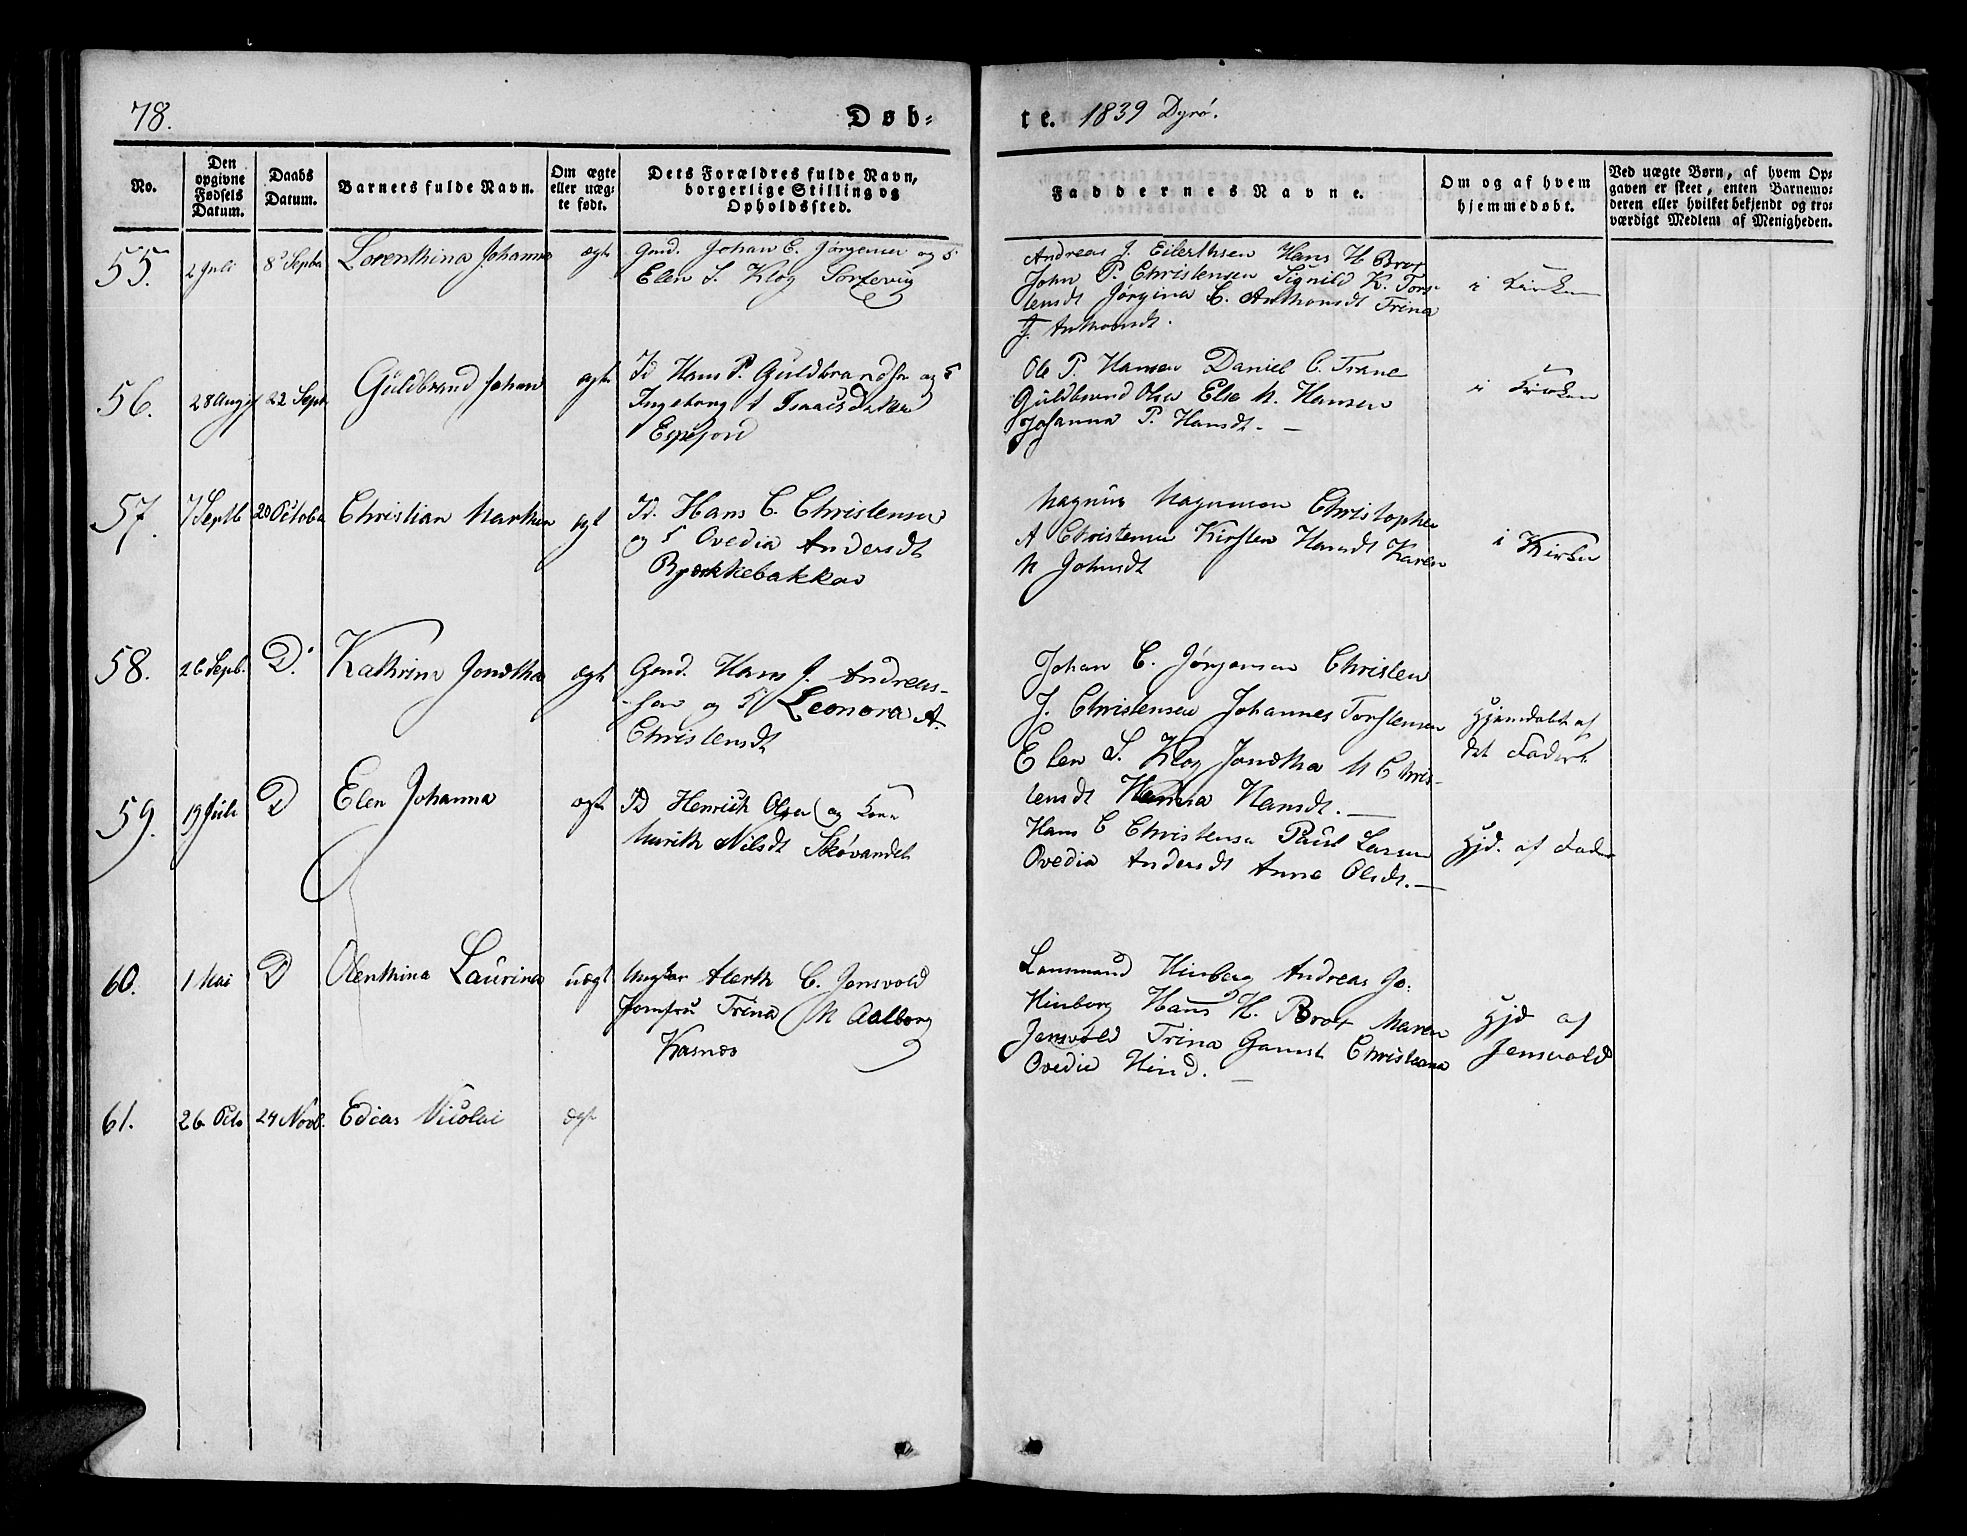 78.
Døb-
te. 1839 Dyrø.
No.
Den
opgivne
Fødsels
Datum.
Daabs
Datum.
Barnets fulde Navn.
Om ægte
eller uæg-
te født.
Dets Forældres fulde Navn,
borgerlige Stilling og
Opholdssted.
Faddernes Navne.
Om og af hvem
hjemmedøbt.
Ved uægte Børn, af hvem Op-
gaven er skeet, enten Barnemo-
deren eller hvilket bekjendt og tro-
værdigt Medlem af Menigheden.
55. 2 Juli 8 Septbr Lorenthina Johanna ægte
Gmd. Johan C. Jørgensen og
Elen S. Klog Sortevig
Andreas J. Eilerthsen Hans H Brox
John P. Christensen Signild K. Tors-
tensdt Jørgina C. Anthonsdt Trina
J. Anthonsdt.
i Kirken
56. 28 Aug 22 Septr Guldbrand Johan ægte
Id Hans P. Guldbrandsen og
Ingeborg Isaacsdatter
Espefjord
Ole P. Hansen Daniel C. Trane
Guldbrand Olsen Else M. Hansen
Johanna P. Hansdt. —
i Kirken
57. 7 Septb 20 Octobr Christian Marthin ægt
Id. Hans C. Christensen
og Ovedia Andersdt
Bjerkkebakken
Magnus Magnusen Christopher
A Christensen Kirsten Hansdt Karen
M Johnsdt
i Kirken
58. 26 Sepb. D. Kathrine Jonetha ægte
Gmd. Hans J. Andreas-
sen og Leonora A.
Christensdt
Johan C. Jørgensen Christen
J. Christensen Johannes Torstensen
Elen S. Klog Jonetha M Chris-
tensdt Hanna Hansdt. —
Hjemdøbt af
det Fader
59. 19 Juli D Elen Johanna ægte
ID Henrich Olsen og Kone
Marith Nilsdt Skøvandet
Hans C Christensen Paul Larsen
Ovedia Andersdt Anne Olsdt. —
Hjd. af Fader
60. 1 Mai D Olenthina Laurina uægt
Ungkar Alerth C. Jensvold
Jomfru Trina M Aalborg
Kasnes
Lensmand Hinberg Andreas Jo.
Hinberg Hans H. Brox Maren
Jensvold Trina Gamst Christiana
Ovedie Hind. —
Hjd af
Jensvold
61. 26 Octo 24 Novb. Edias Nicolai ægt